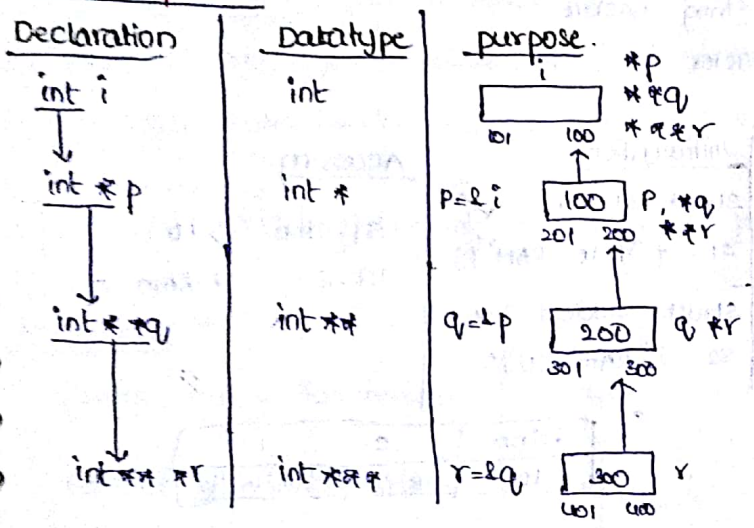 Declaration Datatype purpose.
int i int i *p
**q
101 100 ***r
int *p int * p=&i 100 p, *q
201 200 **r
int **q int ** q=&p 200 q *r
301 300
int ***r int *** r=&q 300 r
401 400